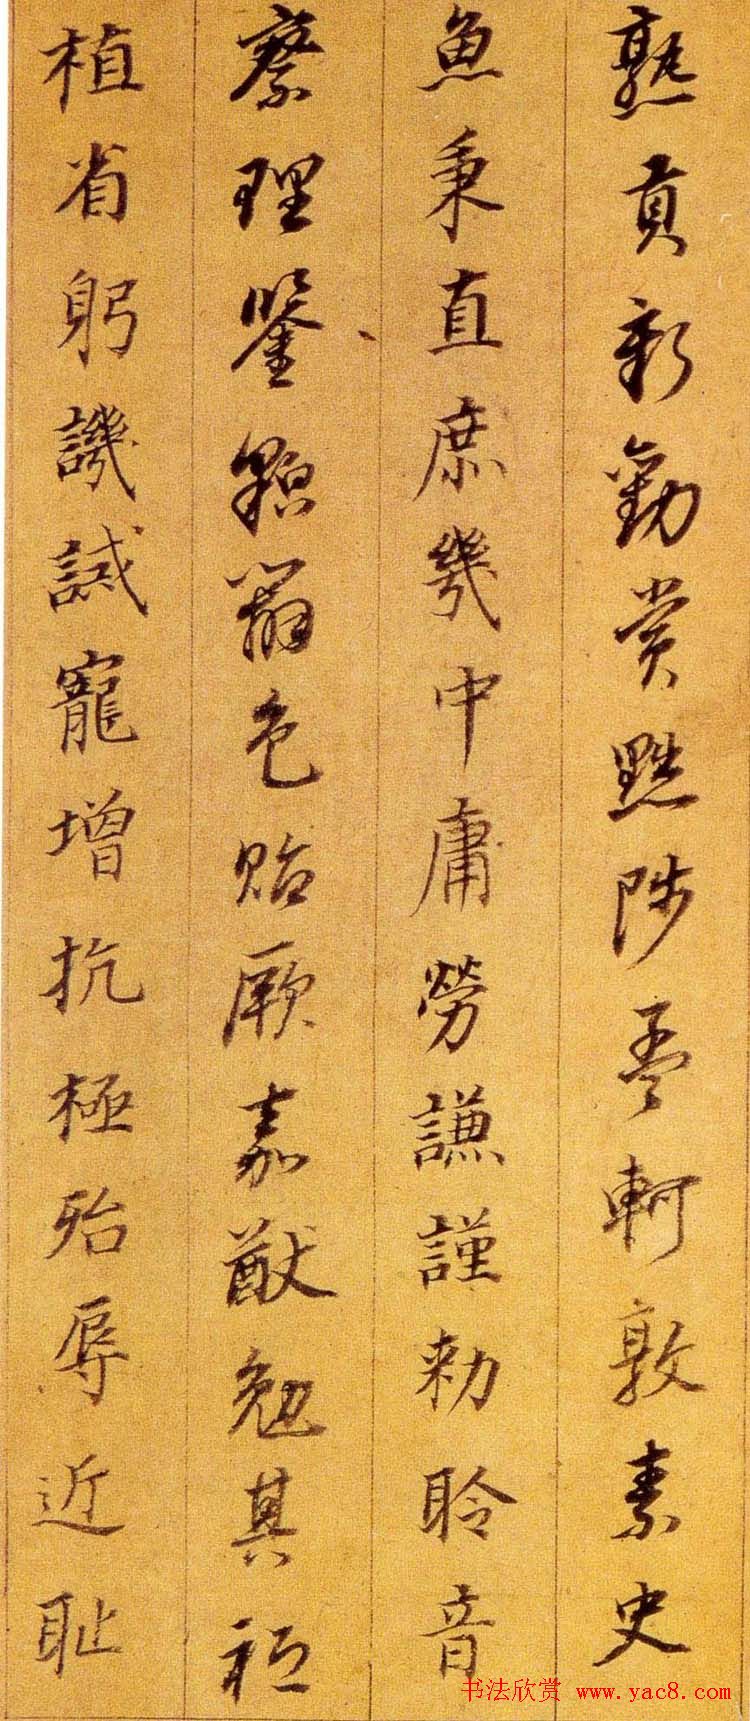 熟貢新勸賞黜陟孟軻敦素史
魚秉直庶幾中庸勞謙謹勑聆音
察理鑒貌辯色貽厥嘉猷勉其祗
植省躬譏誡寵增抗極殆辱近恥
书法欣赏 www.yac8.com